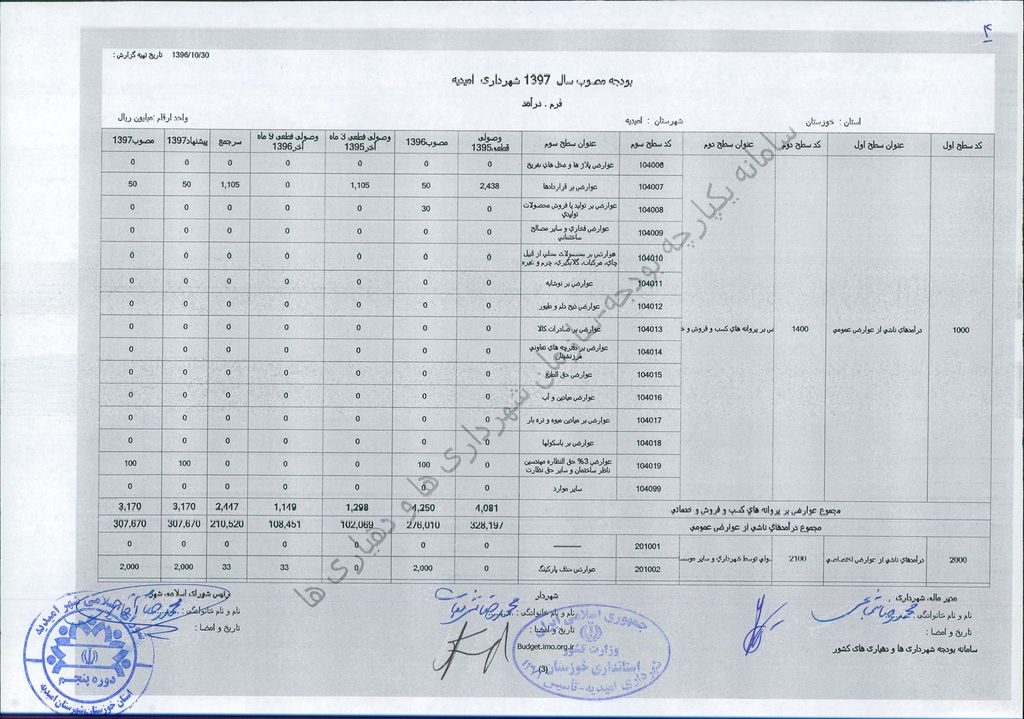 ۴
تاریخ تهیه گزارش : 1396/10/30
بودجه مصوب سال 1397 شهرداری امیدیه
فرم . درآمد
استان : خوزستان شهرستان : امیدیه واحد ارقام :میلیون ریال
کد سطح اول عنوان سطح اول کد سطح دوم عنوان سطح دوم کد سطح سوم عنوان سطح سوم وصولی قطعی1395 مصوب1396 وصولی قطعی 3 ماه آخر1395 وصولی قطعی 9 ماه آخر1396 سرجمع پیشنهاد1397 مصوب1397
104006 عوارض پلاژ ها و محل های تفریح 0 0 0 0 0 0 0
104007 عوارض بر قراردادها 2,438 50 1,105 0 1,105 50 50
104008 عوارض بر تولید یا فروش محصولات تولیدی 0 30 0 0 0 0 0
104009 عوارض فخاری و سایر مصالح ساختمانی 0 0 0 0 0 0 0
104010 عوارض بر محصولات محلی از قبیل چای، مرکبات، گلابگیری، چرم و غیره 0 0 0 0 0 0 0
104011 عوارض بر نوشابه 0 0 0 0 0 0 0
104012 عوارض ذبح دام و طیور 0 0 0 0 0 0 0
1000 درآمدهای ناشی از عوارض عمومی 1400 ض بر پروانه های کسب و فروش و خ 104013 عوارض بر صادرات کالا 0 0 0 0 0 0 0
104014 عوارض بر دفترچه های تعاونی مرزنشینان 0 0 0 0 0 0 0
104015 عوارض حق الطبع 0 0 0 0 0 0 0
104016 عوارض میادین و آب 0 0 0 0 0 0 0
104017 عوارض بر میادین میوه و تره بار 0 0 0 0 0 0 0
104018 عوارض بر باسکولها 0 0 0 0 0 0 0
104019 عوارض 3% حق النظاره مهندسین ناظر ساختمان و سایر حق نظارت 0 100 0 0 0 100 100
104099 سایر موارد 0 0 0 0 0 0 0
مجموع عوارض بر پروانه های کسب و فروش و خدماتی 4,081 4,250 1,298 1,149 2,447 3,170 3,170
مجموع درآمدهای ناشی از عوارض عمومی 328,197 276,010 102,069 108,451 210,520 307,670 307,670
201001 ——— 0 0 0 0 0 0 0
2000 درآمدهای ناشی از عوارض اختصاصی 2100 ولی توسط شهرداری و سایر موسس 201002 عوارض حذف پارکینگ 0 2,000 0 33 33 2,000 2,000
سامانه یکپارچه بودجه-سازمان شهرداری ها و دهیاری ها
مدیر ماله، شهرداری
نام و نام خانوادگی :
تاریخ و امضا :
سامانه بودجه شهرداری ها و دهیاری های کشور
شهردار
نام و نام خانوادگی :
تاریخ و امضا :
Budget.imo.org.ir
(3)
رئیس شورای اسلامه، شهر
نام و نام خانوادگی :
تاریخ و امضا :
جمهوری اسلامی ایران
وزارت کشور
استانداری خوزستان
شهرداری امیدیه-تأسیس
شورای اسلامی شهر امیدیه
دوره پنجم
استان خوزستان شهرستان امیدیه